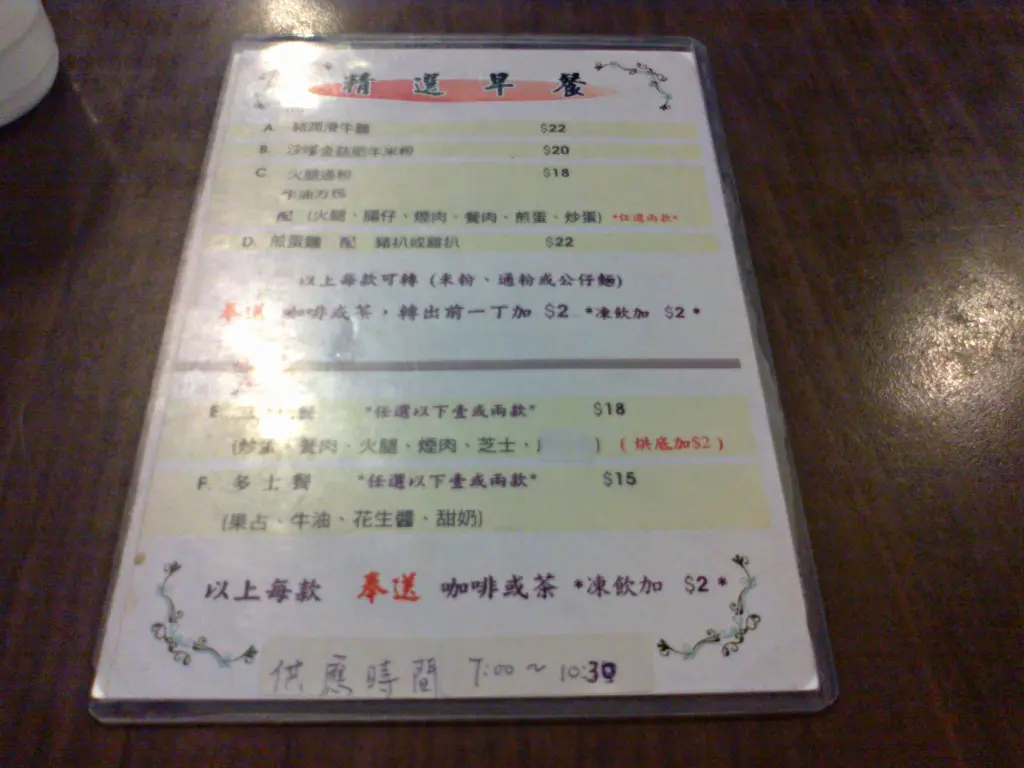 精選早餐
A. 豬潤滑牛麵 $22
B. 沙嗲金菇肥牛米粉 $20
C. 火腿通粉 $18
牛油方包
配 (火腿、腸仔、煙肉、餐肉、煎蛋、炒蛋) *任選兩款*
D. 煎蛋麵 配 豬扒或雞扒 $22
以上每款可轉 (米粉、通粉或公仔麵)
奉送 咖啡或茶，轉出前一丁加 $2 *凍飲加 $2 *
E. 餐 *任選以下壹或兩款* $18
(炒蛋、餐肉、火腿、煙肉、芝士、 ) ( 烘底加$2 )
F. 多士餐 *任選以下壹或兩款* $15
(果占、牛油、花生醬、甜奶)
以上每款 奉送 咖啡或茶 *凍飲加 $2 *
供應時間 7:00～10:30